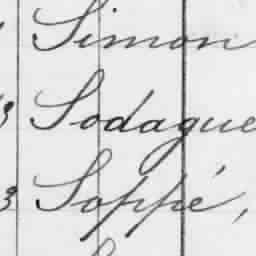 Simon
3 Sodague
3 Soppé,